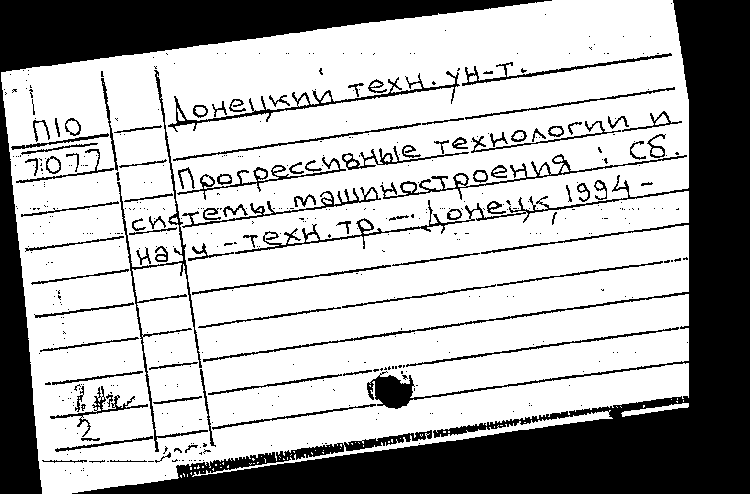 Донецкий техн. ун-т.
П10
7077
Прогрессивные технологии и
системы машиностроения : Сб.
науч-техн. тр. — Донецк, 1994 -
2